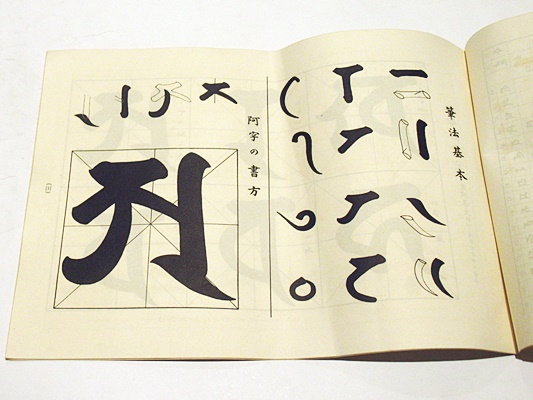 筆法基本
阿字の書方
𑖀